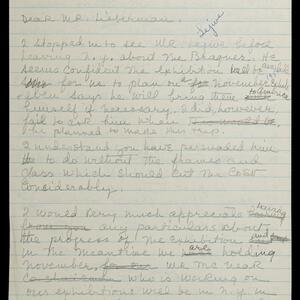 Dear Mr. Lieberman.
Tejwe
I stopped in to see Mr Tejwe before
leaving N.Y. about the
seems confident the exhibition will be available
for us to plan on a November exhibit,
or he says he will bring them to America
himself if necessary. I did however
fail to ask him when
he planned to make this trip.
I understand you have persuaded him
to do without the frames and
glass which should cut the cost
considerably.
I would very much appreciate hearing
from you any particulars about
the progress of the exhibition and
in the meantime we are holding
November, Mr Mc Near
who is working on
our exhibitions will be in N.Y. in